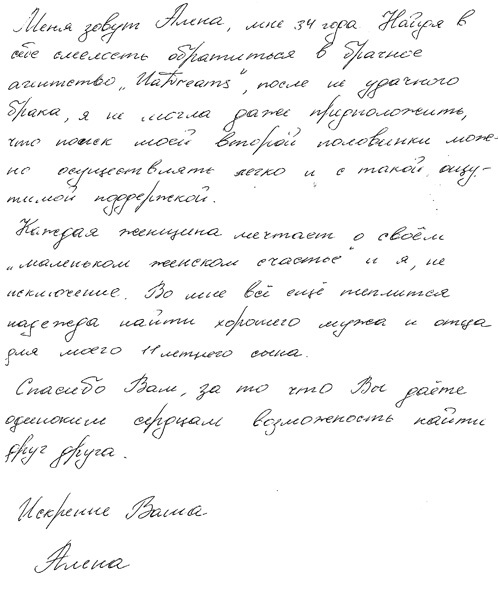 Меня зовут Алена, мне 34 года Найдя в
себе смелость обратиться в брачное
агентство „UaDreams", после не удачного
брака, я не могла даже придположить,
что поиск моей второй половинки мож-
но осуществлять легко и с такой ощу-
тимой поддержкой.
Каждая женщина мечтает о своём
„маленьком женском счастье" и я, не
исключение. Во мне всё ещё теплится
надежда найти хорошего мужа и отца
для моего 11 летнего сына.
Спасибо Вам, за то что Вы даёте
одиноким сердцам возможность найти
друг друга.
Искренне Ваша
Алена